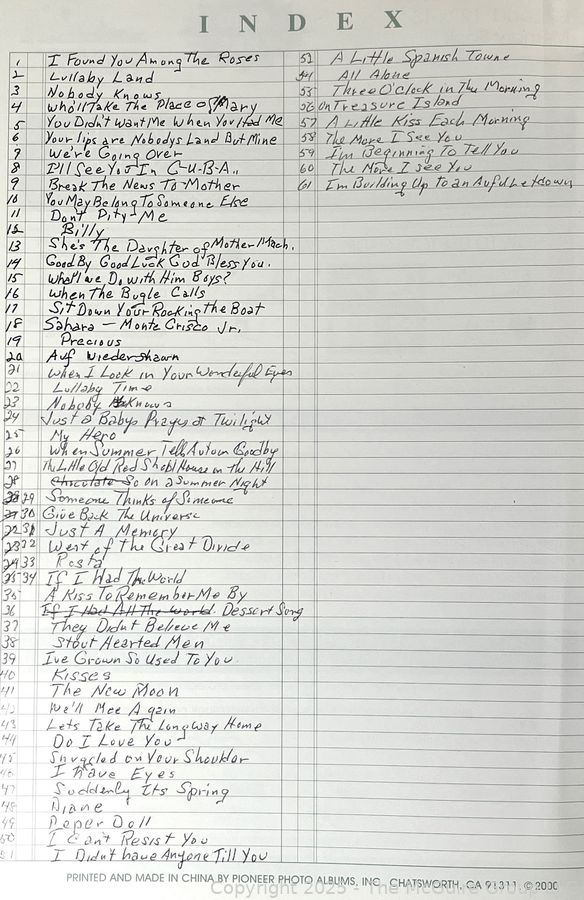 INDEX
1 I Found You Among The Roses
2 Lullaby Land
3 Nobody Knows
4 Who'll Take The Place of Mary
5 You Didn't Want Me When You Had Me
6 Your lips are Nobodys Land But Mine
7 We're Going Over
8 I'll See You In C-U-B-A..
9 Break The News To Mother
10 You May Belong To Someone Else
11 Dont Pity Me
12 Billy
13 She's The Daughter of Mother Mach.
14 Good By Good Luck God Bless You.
15 What'll we Do with Him Boys?
16 When The Bugle Calls
17 Sit Down Your Rocking the Boat
18 Sahara - Monte Crisco Jr.
19 Precious
20 Auf Wiedershawn
21 When I Look in Your Wonderful Eyes
22 Lullaby Time
23 Nobody Knows
24 Just a Babys Prayer at Twilight
25 My Hero
26 When Summer Tells Autum Goodby
27 The Little Old Red Shool House on the Hill
28 Chocolate So on a Summer Night
29 Someone Thinks of Someone
30 Give Back The Universe
31 Just A Memory
32 West of the Great Divide
33
34 If I Had The World
35 A Kiss To Remember Me By
36 If I Had All The World. Dessert Song
37 They Didnt Believe Me
38 Stout Hearted Men
39 Ive Grown So Used To You.
40 Kisses
41 The New Moon
42 We'll Mee Again
43 Lets Take The Long Way Home
44 Do I Love You
45 Snuggled on Your Shoulder
46 I Have Eyes
47 Suddenly Its Spring
48 Diane
49 Paper Doll
50 I Can't Resist You
51 I Didn't have Anyone Till You
A Little Spanish Towne
54 All Alone
55 Three O'Clock in The Morning
56 On Treasure Island
57 A Little Kiss Each Morning
58 The More I See You
59 I'm Beginning To Tell You
60 The More I see You
61 Im Building Up to an Auful Letdown
PRINTED AND MADE IN CHINA BY PIONEER PHOTO ALBUMS, INC. CHATSWORTH, CA 91311 © 2000
Copyright 2025 - The McGuire Group